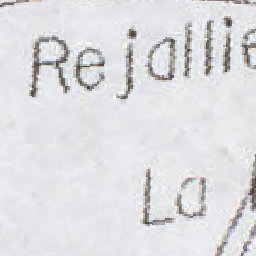 Rejallie
La